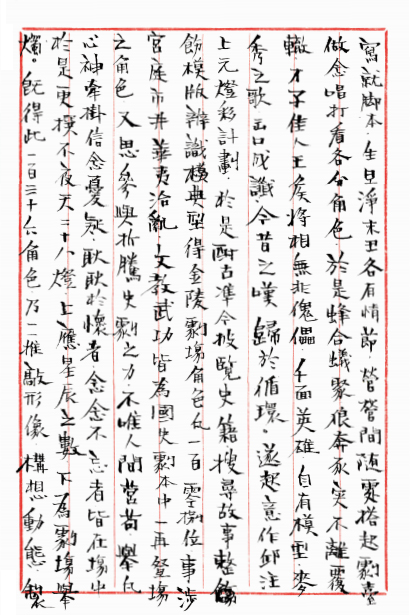 寫就脚本生旦淨末丑各有情節營營間隨處搭起劇臺
做念唱打看各分角色於是蜂合蟻聚狼奔豕突不離覆
轍才子佳人王侯將相無非傀儡千面英雄自有模型麥
秀之歌出口成讖今昔之嘆歸於循環遂起意作邱注
上元燈彩計劃於是酌古準今披覽史籍搜尋故事整飭
飭模版辨識模典型得金陵劇場角色凡一百零捌位事涉
宮庭市井華夷治亂文教武功皆為國史劇本中一再登場
之角色又思參與折騰史劇之力不唯人間營苟舉凡
心神牽掛信念憂氣耿耿於懷者念念不忘者皆在場中
於是更撰不夜天二十八燈上應星辰之數下為劇場舉
燭既得此一百三十六角色乃一推敲形像構想動態製